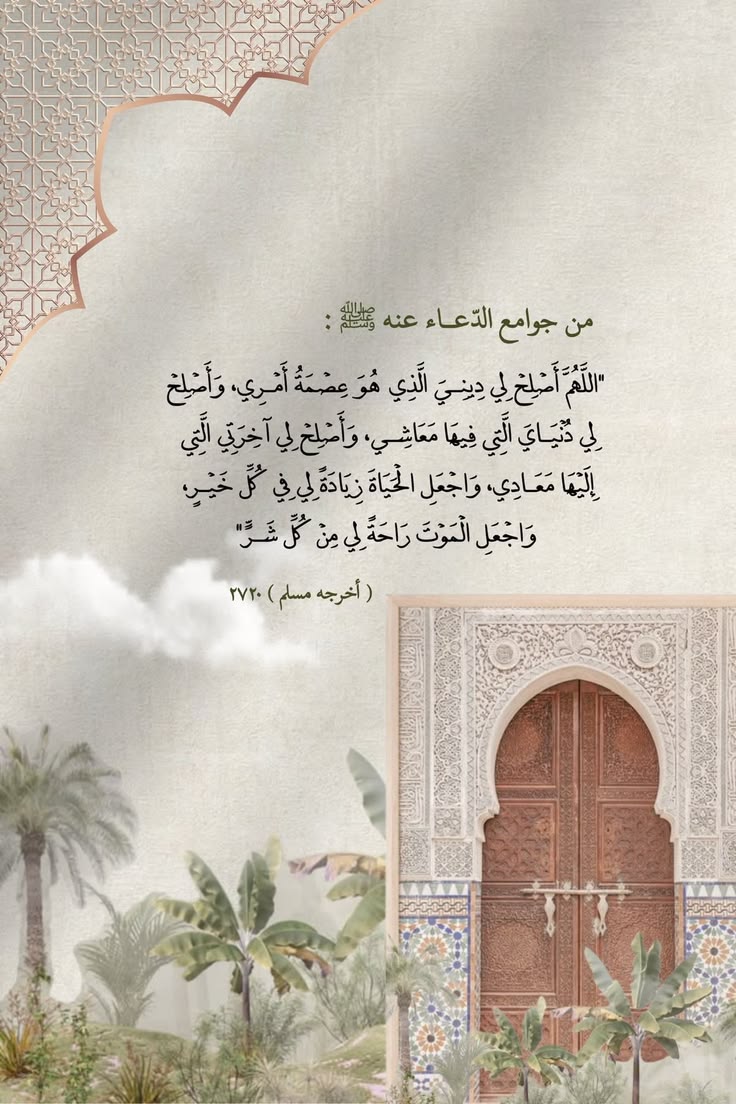 من جوامع الدّعـاء عنه ﷺ :
"اللَّهُمَّ أَصْلِحْ لِي دِينِـيَ الَّذِي هُوَ عِصْمَةُ أَمْـرِي، وَأَصْلِحْ
لِي دُنْيَـايَ الَّتِي فِيهَا مَعَاشِـي، وَأَصْلِحْ لِي آخِرَتِي الَّتِي
إِلَيْهَا مَعَـادِي، وَاجْعَلِ الْحَيَاةَ زِيَادَةً لِي فِي كُلِّ خَيْـرٍ،
وَاجْعَلِ الْمَوْتَ رَاحَةً لِي مِنْ كُلِّ شَـرٍّ"
( أخرجه مسلم ) ٢٧٢٠